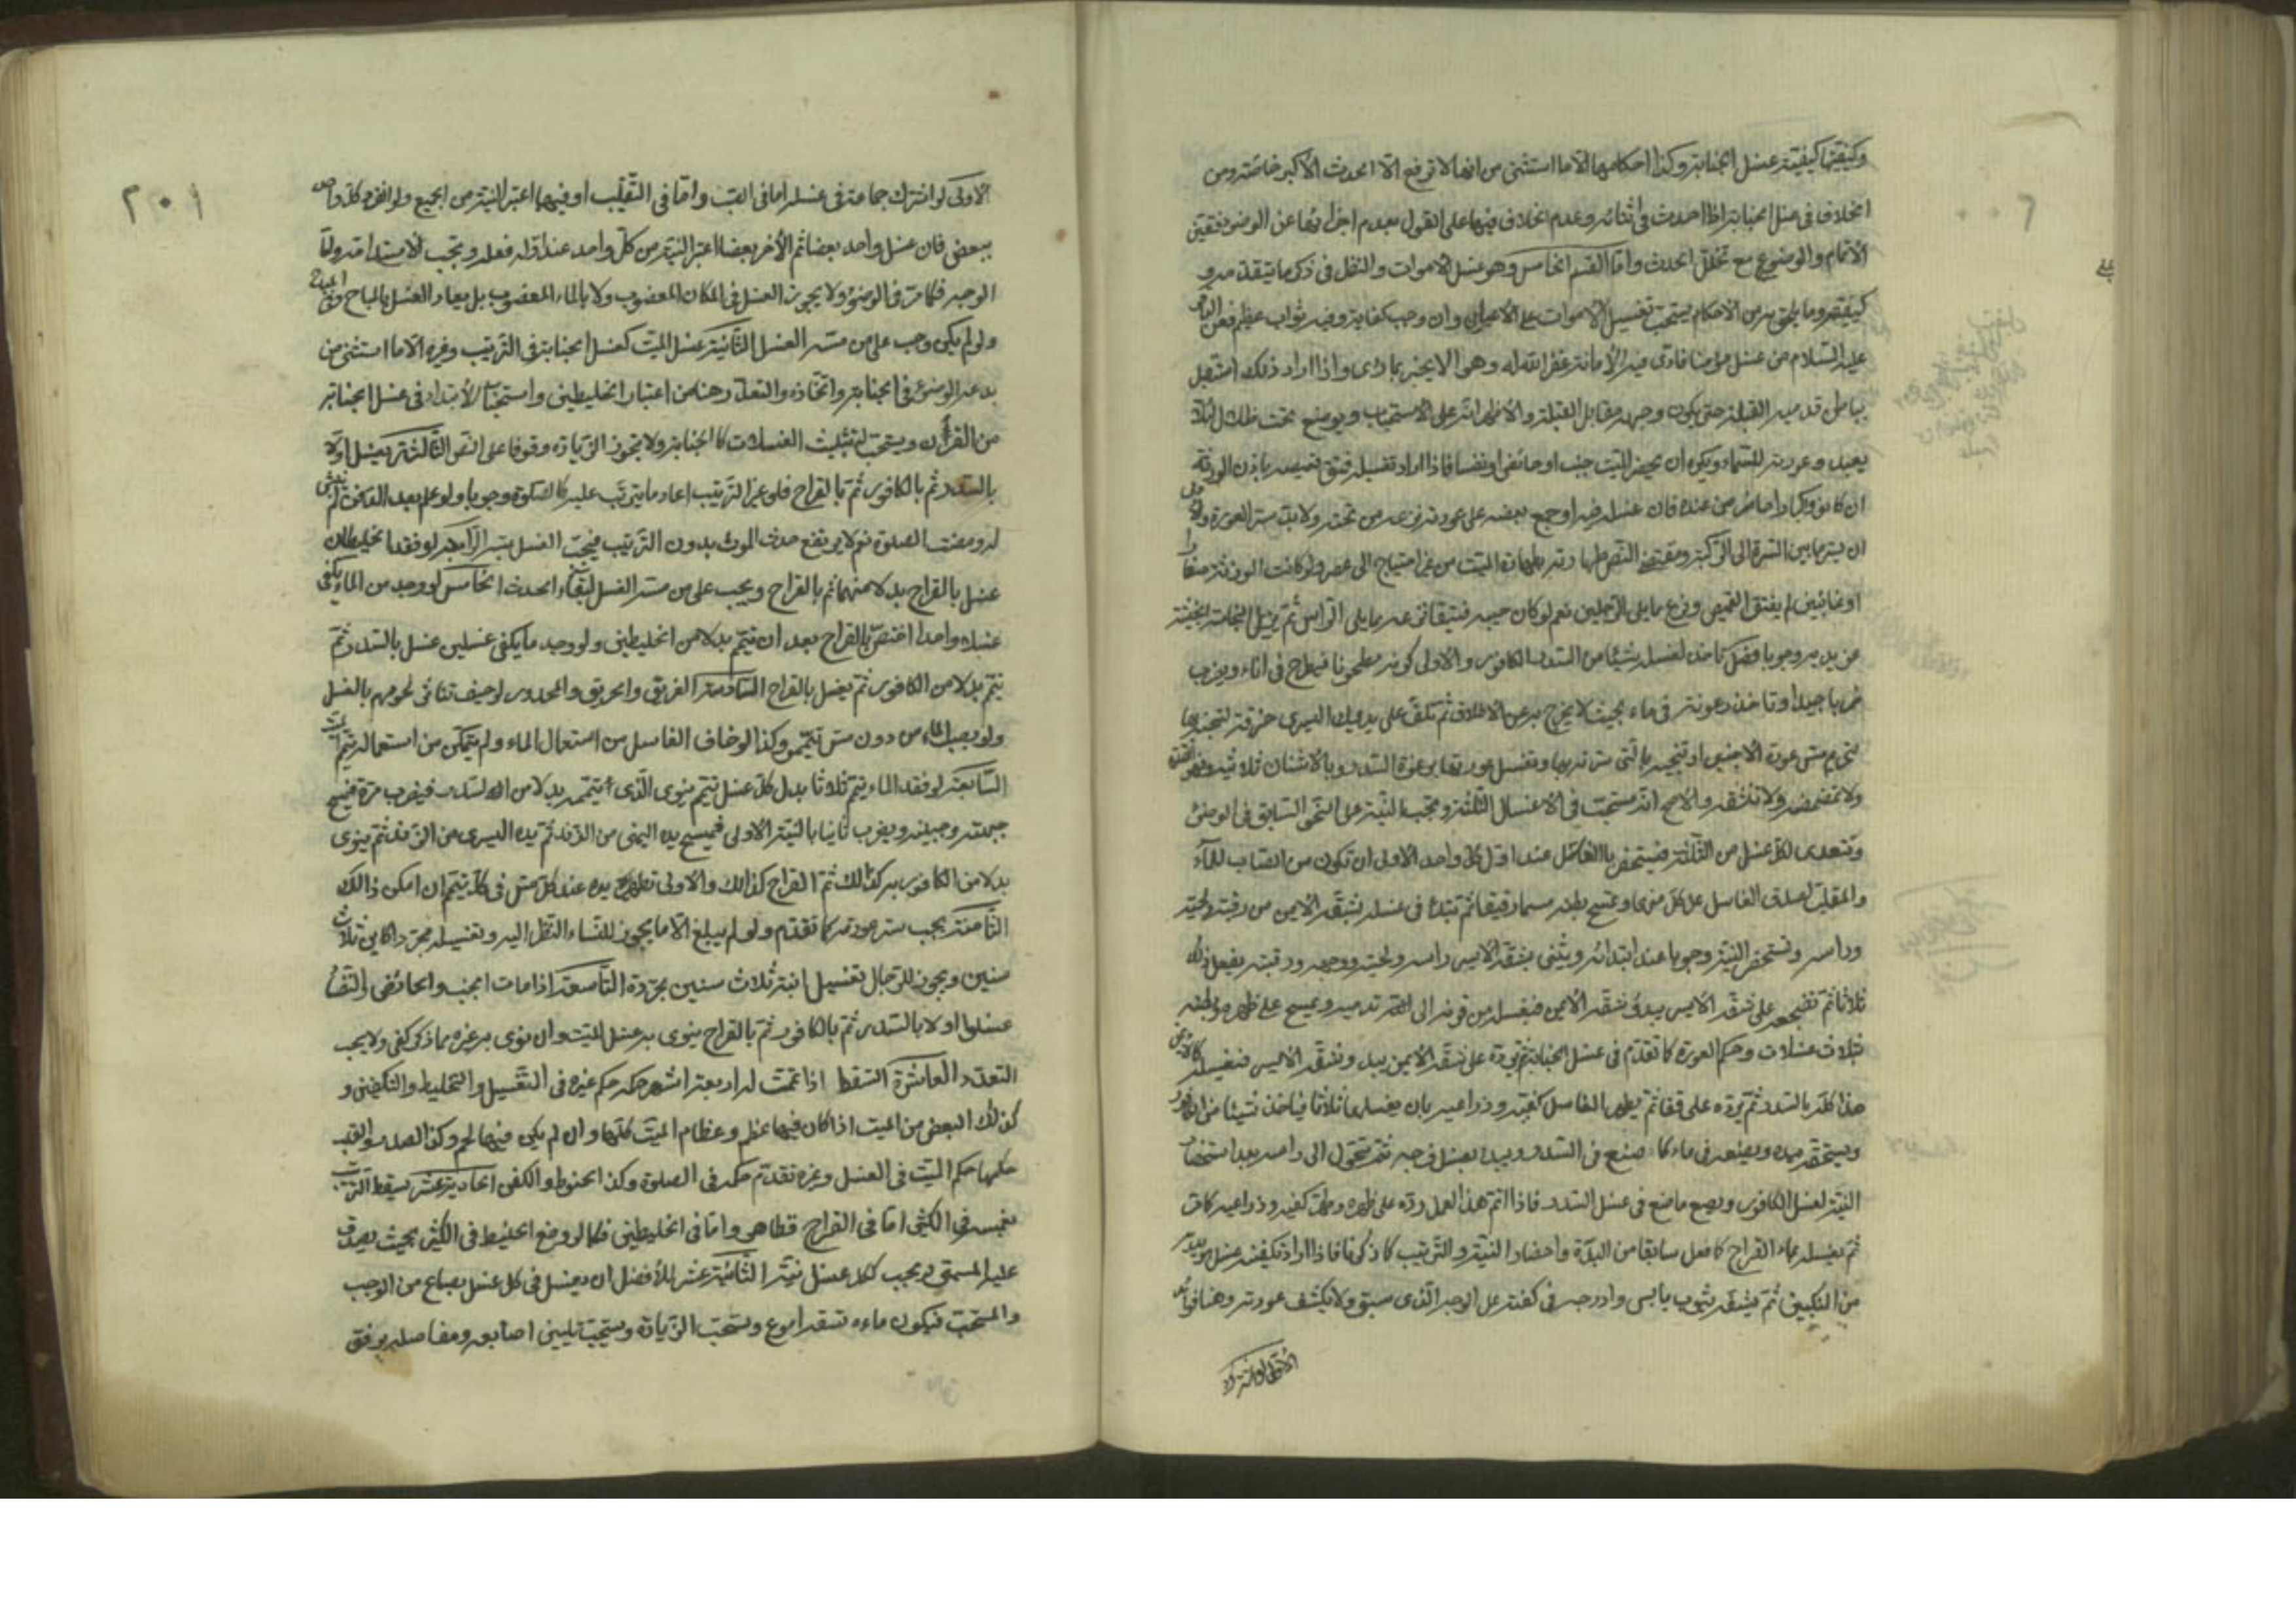 وكيفيتها كيفية غسل الجنابة وكذا احكامها الا ما استثنى من انها لا ترفع الا الحدث الأكبر خاصة ومن
الخلاف في غسل الجنابة اذا احدث في اثنائه وعدم الخلاف فيها على القول بعدم اجزائها عن الوضوء فتعين
الاتمام والوضوء مع تخلل الحدث واما القسم الخامس وهو غسل الاموات والنظر في ذكر ما يتقدمه و
كيفيته وما يلحق به من الاحكام يستحب تغسيل الاموات على الاعيان وان وجب كفاية وفيه ثواب عظيم فعن
عليه السلام من غسل مؤمنا فادى فيه الأمانة غفر الله له وهو الا يخبر بما رأى واذا اراد ذلك استقبل
بباطن قدميه القبلة حتى يكون وجهه مقابل القبلة والاظهر انه على الاستحباب ويوضع تحت ظل لئلا
يصل وعورته للسماء ويكره ان يحضر الميت جنب او حائض او نفساء فاذا اراد تغسيله فتق قميصه باذن الورثة
ان كانوا كبارا من عنده فان غسله فيه او جمع بعضه على عورته نزعه من تحته ولا بد ستر العورة
ان يستر ما بين السرة الى الركبة ومقتضى النص طهارته بطهارة الميت من غير احتياج الى عصر ولو كانت الورثة صغارا
او غائبين لم يفتق القميص ونزع مما يلي الرجلين نعم لو كان جيبه ضيقا نزعه مما يلي الراس ثم يزيل النجاسة الخبيثة
عن بدنه وجوبا فضل تاخذ لغسله شيئا من السدر الكافور والاولى كونه مطحونا فيطرح في اناء ويضرب
ضربا جيدا وتاخذ رغوته في ماء بحيث لا يخرج به عن الاطلاق ثم تلف على يديك اليسرى خرقة لتنجيه بها
لتحريم مس عورة الاجنبي او تنجيه بالتي ستر بها وتغسل عورتها برغوة السدر وبالاشنان ثلاثا
ولا تمضمضه ولا تنشقه والاصح انه مستحب في الاغسال الثلثة وتجب النية على النحو السابق في الوضوء
وتتعدى لكل غسل من الثلثة فيستحضرها الغاسل عند اول كل واحد الاولى ان تكون من الصاب للماء
والمقلب لصدق الغاسل على كل منهما وتمسح بطنه مسحا رقيقا ثم تبدأ في غسله بشقه الايمن من رقبته ولحيته
وراسه وتستحضر النية وجوبا عند ابتدائه ويثنى بشقه الايسر راسه ولحيته ووجهه ورقبته يفعل ذلك
ثلاثا ثم تضجعه على شقه الايسر يبدو شقه الأيمن فيغسله من قرنه الى اخر قدميه ويمسح على ظهره وبطنه
ثلاث غسلات وحكم العورة كما تقدم في غسل الجنابة ثم ترده على شقه الايمن يبدو شقه الايسر فيغسله كالايمن
هذا كله بالسدر ثم يرده على قفا ثم يطهر الغاسل كفيه وذراعيه بان يغسلها ثلاثا فياخذ شيئا من الكافور
ويسحقه بيده ويضعه في ماء كما صنع في السدر ويبدا بغسل فرجه ثم يتحول الى راسه يبدا مستحضرا
النية لغسل الكافور ويصنع ما صنع في غسل السدر فاذا اتم هذا العمل رده على ظهره وطهر كفيه وذراعيه كما مر
ثم يغسله بماء القراح كما فعل سابقا من البدأة واحضار النية والترتيب كما ذكرنا فاذا اراد تكفينه غسل يديه
من المنكبين ثم ينشفه بثوب يابس وادرجه في كفنه على الوجه الذي سبق ولا يكشف عورته وهنا فوائد
الاولى لو اشترك
٢٠١
الاولى لو اشترك جماعة في غسله اما في الصب واما في التقليب او فيهما اعتبر النية من الجميع ولو انفرد كل واحد
ببعض فان غسل واحد بعضا ثم الأخر بعضا اعتبر النية من كل واحد عند اول فعله وتجب الاستدامة ولنا
الوجه فكما مر في الوضوء ولا يجوز الغسل في المكان المغصوب ولا بالماء المغصوب بل يعاد الغسل بالمباح
ولو لم يكن وجب على من مسه الغسل الثانية غسل الميت كغسل الجنابة في الترتيب وغيره الا ما استثنى من
بدعية الوضوء في الجنابة واتحاده والتعدد هنا من اعتبار الخليطين واستحباب الأبتداء في غسل الجنابة
من القرأن ويستحب تثليث الغسلات كالجنابة ولا تجوز الزيادة وقوفا على النص الثالثة يغسل اولا
بالسدر ثم بالكافور ثم بالقراح فلو غير الترتيب اعاد ما يترتب عليه كالصلوة وجوبا ولو علم بعد الدفن لم ينبش
له ومضت الصلوة نعم لا يرتفع حدث الموت بدون الترتيب فيجب الغسل بمسه الرابعة لو فقد الخليطان
غسل بالقراح بدلا منهما ثم بالقراح ويجب على من مسه الغسل لبقاء الحدث الخامس لو وجد من الماء يكفي
غسلا واحدا اختص بالقراح بعد ان تيمم بدلا من الخليطين ولو وجد ما يكفي غسلين غسل بالسدر ثم
تيمم بدلا من الكافور ثم يغسل بالقراح السادسة الغريق والحريق والمجدور لو خيف تناثر لحومهم بالغسل
ولو بصب الماء من دون مس تيمم وكذا لو خاف الغاسل من استعمال الماء ولم يتمكن من استعماله تيمم
السابعة لو فقد الماء تيمم ثلاثا بدل كل غسل تيمم ينوى الذى تيممه بدلا من السدر فيضرب مرة فيمسح
جبهته وجبينه ويضرب ثانيا بالنية الاولى فيمسح يده اليمنى من الزند ثم يده اليسرى من الزند ثم ينوى
بدلا من الكافور كذالك ثم القراح كذالك والاولى تطهير يده عند كل مس في كل تيمم ان امكن ذالك
الثامنة يجب ستر عورته كما تقدم ولو لم يبلغ الا ما يجوز للنساء النظر اليه وتغسيله مجردا كابن ثلاث
سنين ويجوز للرجال تغسيل ابنة ثلاث سنين مجردة التاسعة اذا مات الجنب والحائض والنفساء
غسلوا اولا بالسدر ثم بالكافور ثم بالقراح ينوى به غسل الميت وان نوى به غيره مما ذكر كفى ولا يجب
التعدد العاشرة السقط اذا تمت له اربعة اشهر حكمه حكم غيره في التغسيل والتحنيط والتكفين و
كذلك البعض من الميت اذا كان فيها عظم وعظام الميت كلها وان لم يكن فيها لحم وكذا الصدر والقلب
حكمها حكم الميت في الغسل وغيره تقدم حكمه في الصلوة وكذا الحنوط والكفن الحادية عشر يسقط الترتيب
بغمسه في الكثير اما في القراح فظاهر واما في الخليطين فكما لو وضع الخليط في الكثير بحيث يصدق
عليه المسمى نعم يجب لكل غسل نية الثانية عشر الأفضل ان يغسل في كل غسل بصاع من الوجب
والمستحب فيكون ماءه تسعة اصوع وتستحب الزيادة ويستحب تليين اصابعه ومفاصله برفق